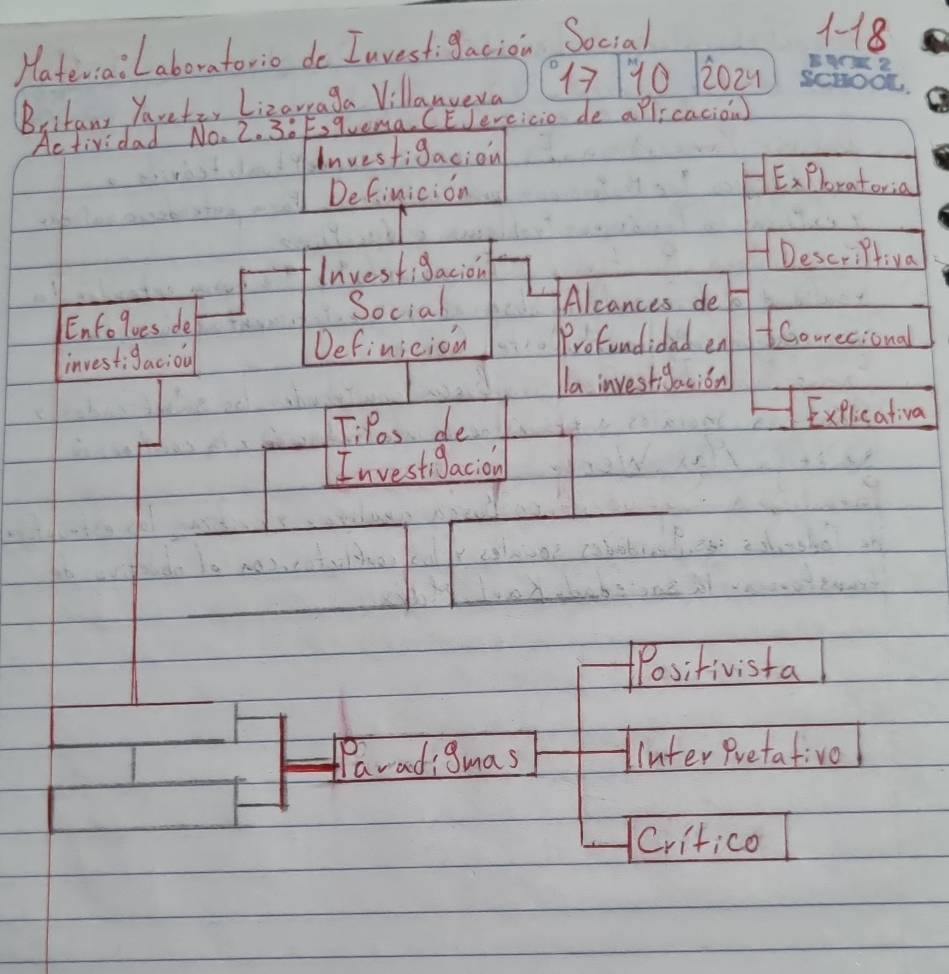 Materia: Laboratorio de Investigación Social
1-18
D 17 M 10 A 2024
BACK 2
SCHOOL.
Britany Yaretzy Lizarraga Villanueva
Actividad No. 2.3: Esquema. (Ejercicio de aplicación)
Investigación
Definición
Investigación
Social
Definición
Enfoques de
investigación
Alcances de
Profundidad en
la investigación
Exploratoria
Descriptiva
Correcional
Explicativa
Tipos de
Investigación
Paradigmas
Positivista
Interpretativo
Crítico